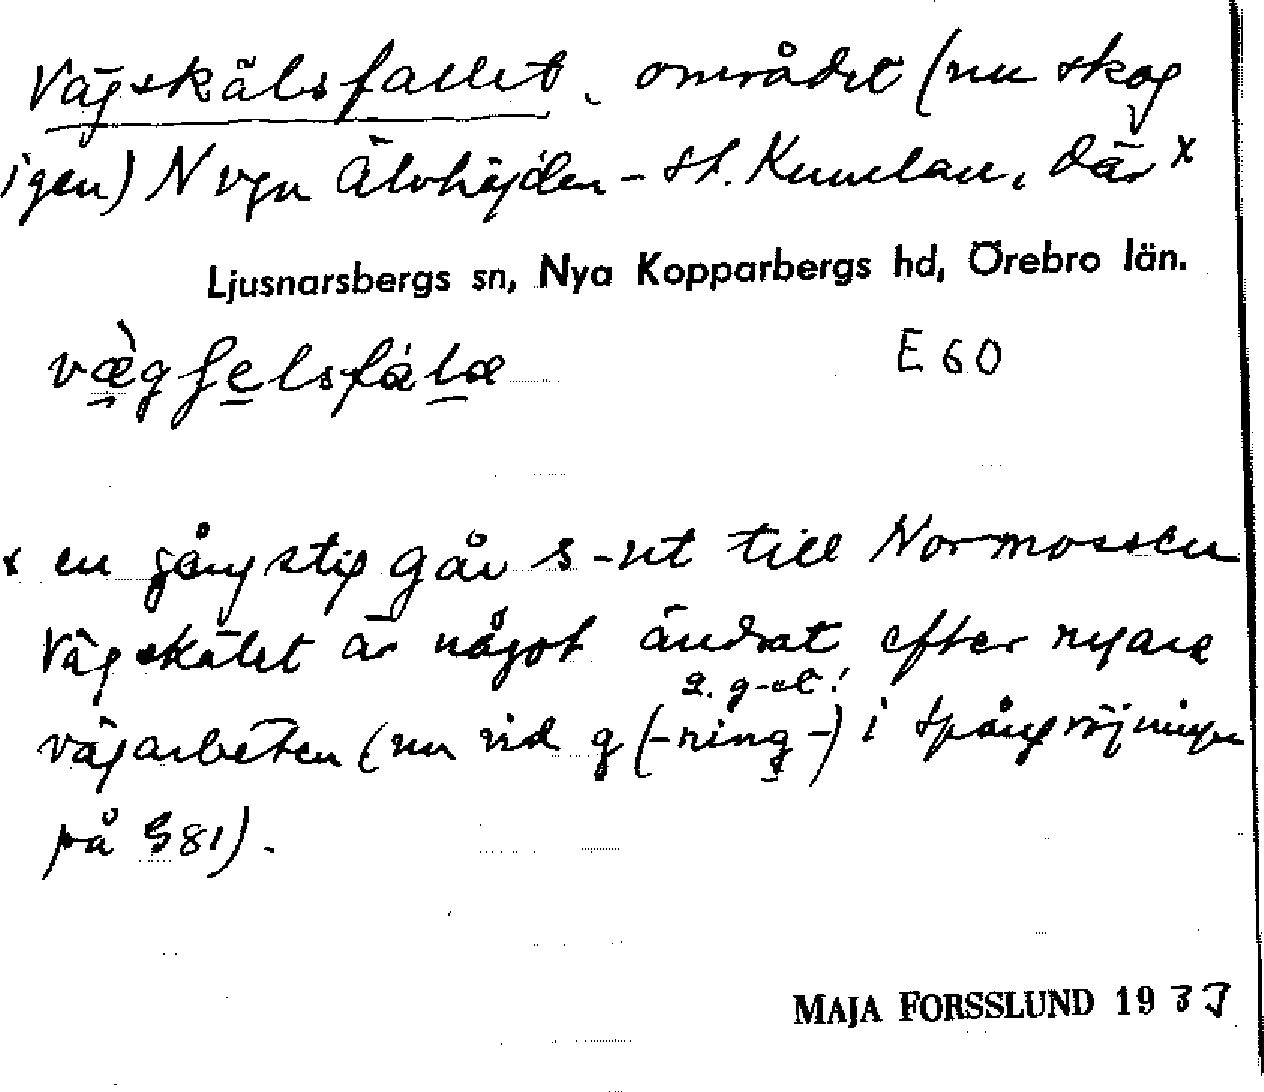 Vägskälsfallet, området (nu skog
igen) N vgn Älvhöjden - St. Kumlan, där x
Ljusnarsbergs sn, Nya Kopparbergs hd, Örebro län.
E 60
x en gångstig går s-ut till Normossen
Vägskälet är något ändrat efter nyare
2. g-et!
vägarbeten (nu vid g (-ning-) i Spångröjningen
på S81).
MAJA FORSSLUND 19